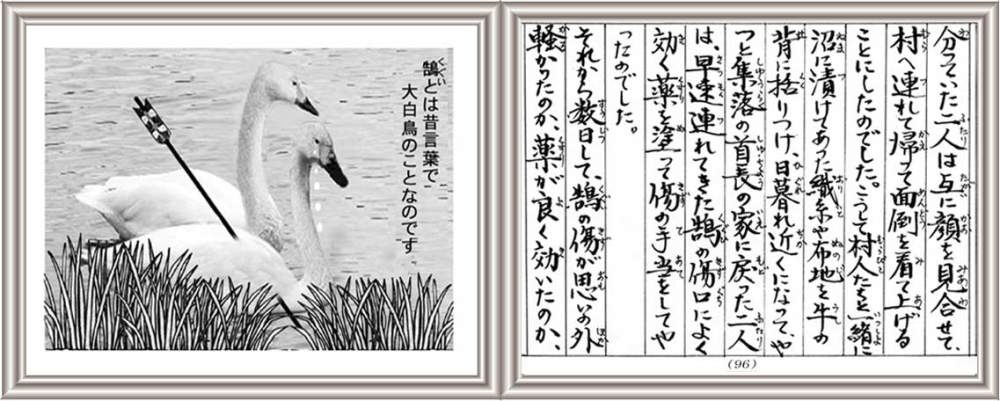 分っていた二人は互に顔を見合せて、
村へ連れて帰って面倒を看て上げる
ことにしたのでした。こうして村人たちと一緒に
沼に漬けてあった織糸や布地を牛の
背に括りつけ、日暮れ近くになって、や
っと集落の首長の家に戻った二人
は、早速連れてきた鵠の傷口によく
効く薬を塗って傷の手当をしてや
ったのでした。
それから数日して、鵠の傷が思いの外
軽かったのか、薬が良く効いたのか、
(96)
鵠とは昔言葉で
大白鳥のことなのです